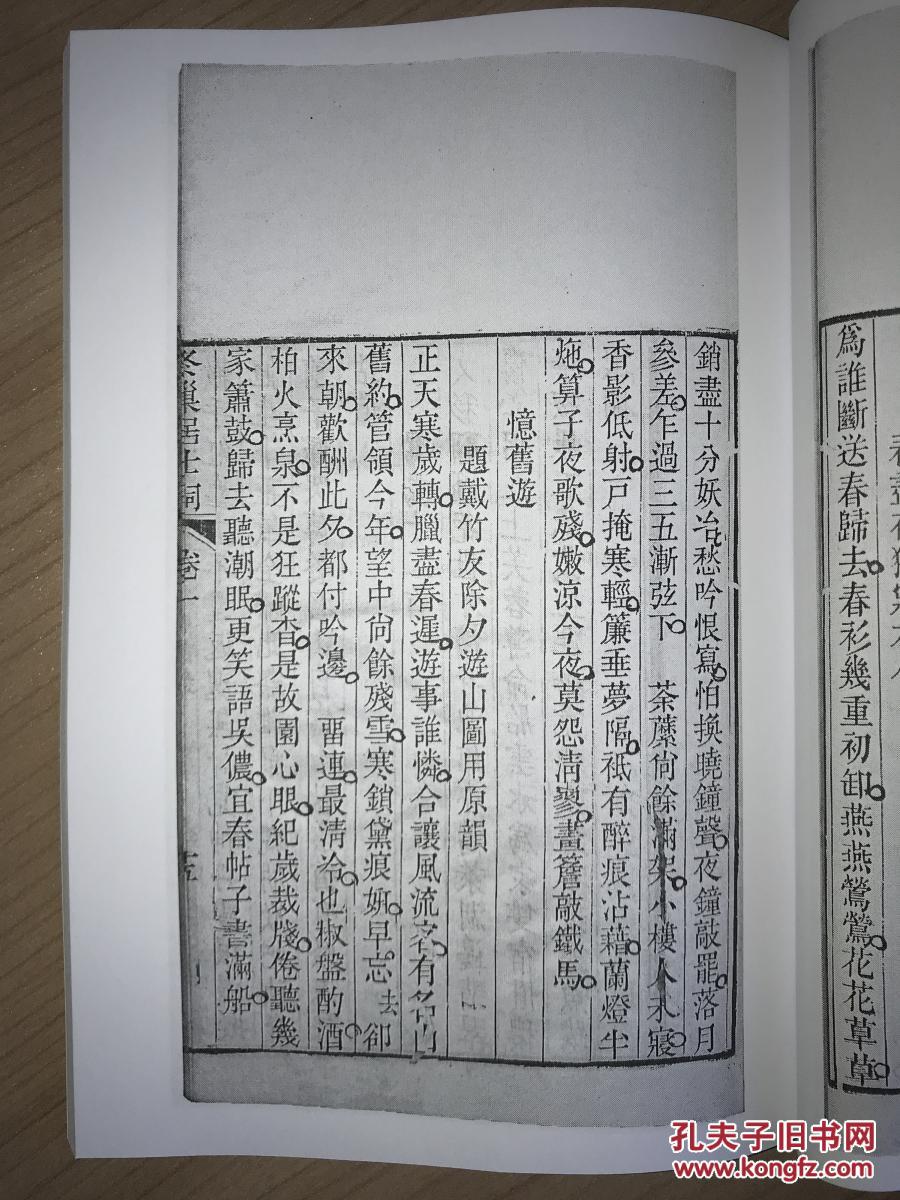 爲誰斷送春歸去。春衫幾重初卸。燕燕鶯鶯。花花草草。
銷盡十分妖冶。愁吟恨寫。怕換曉鐘聲。夜鐘敲罷。落月
參差。乍過三五漸弦下。　荼蘼尙餘滿架。小樓人未寢。
香影低射。戸掩寒輕。簾垂夢隔。祗有醉痕沾藉。蘭燈半
灺。算子夜歌殘。嫩凉今夜。莫怨淸寥。畫簷敲鐵馬。
憶舊遊
題戴竹友除夕遊山圖用原韻
正天寒歲轉。臘盡春遲。遊事誰憐。合讓風流客。有名山
舊約。管領今年。望中尙餘殘雪。寒鎖黛痕妍。早忘去卻
來朝。歡酬此夕。都付吟邊。　畱連。最淸冷。也椒盤酌酒。
柏火烹泉。不是狂蹤杳。是故園心眼。紀歲裁牋。倦聽幾
家簫鼓。歸去聽潮眠。更笑語吳儂。宜春帖子書滿船。
巢居士詞　卷一
孔夫子旧书网
www.kongfz.com